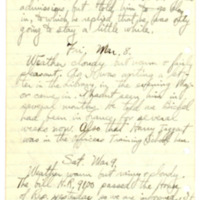 admissions, but told him to go
in, to which he replied that he was only
going to stay a little while.
Fri, Mar. 8.
Weather cloudy but warm & fairly
pleasant. As I was writing a let-
ter in the library in the evening Ray
came in. I hadn't seen him in
several months. He told us
had been in for several
weeks now. Also that Harry
was in the Officers Training School
Sat. Mar 9.
Weather warm but rainy & cloudy.
The bill H.R. 9100 passed the House
of Rep. yesterday so we are informed